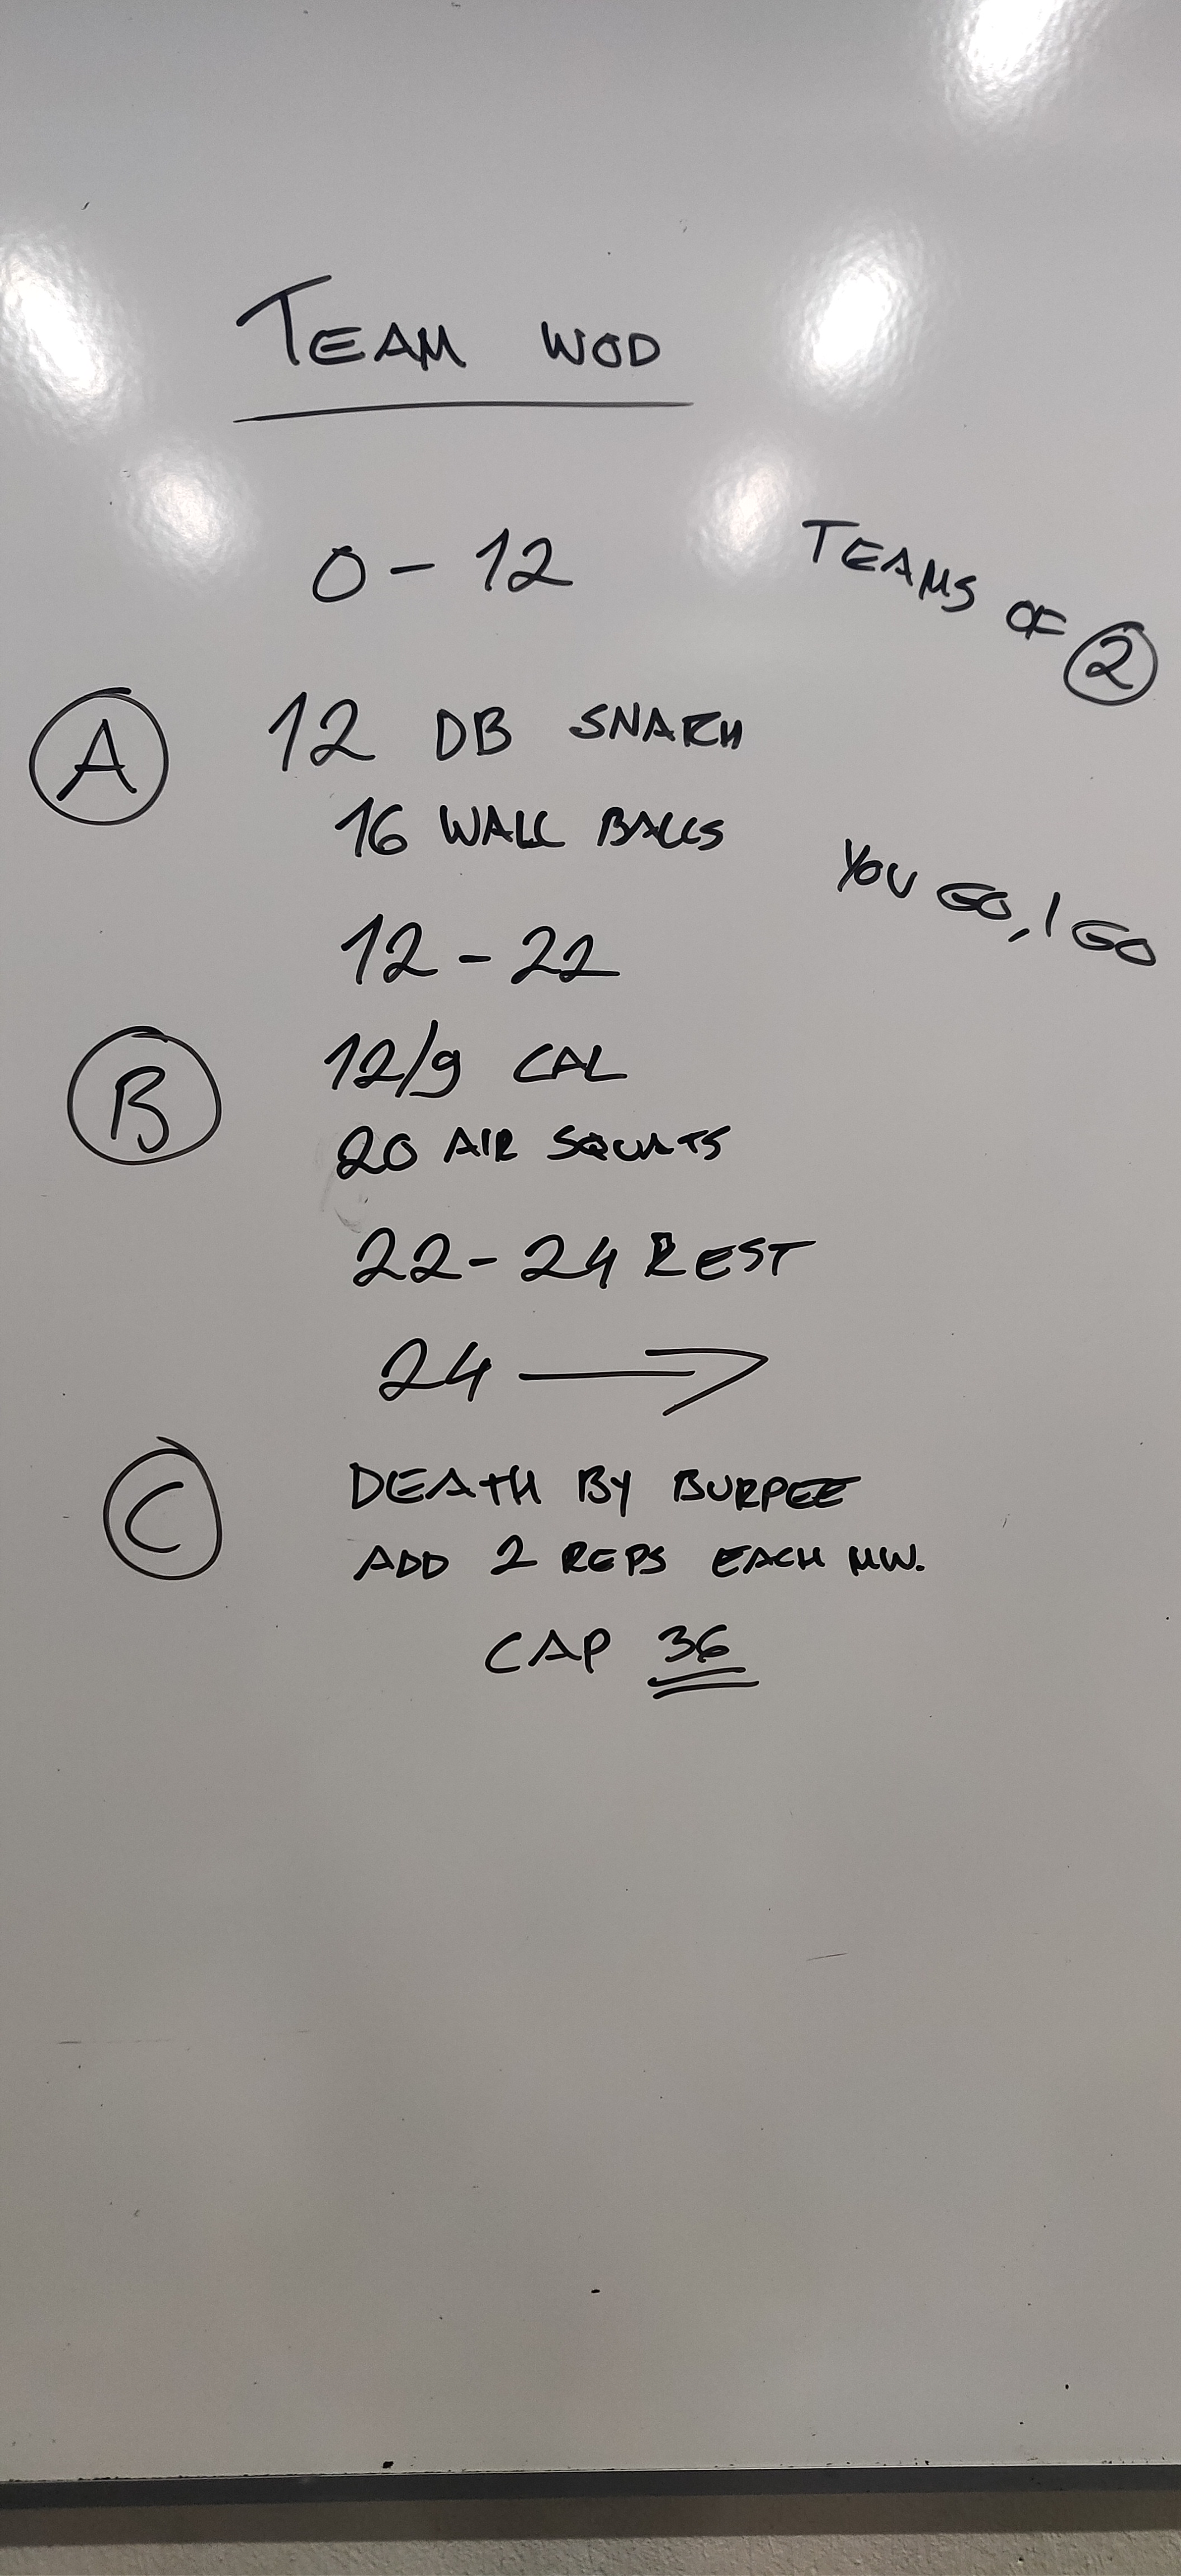 TEAM WOD
0 - 12
TEAMS OF 2
A
12 DB SNATCH
16 WALL BALLS
YOU GO, I GO
12 - 22
B
12/9 CAL
20 AIR SQUATS
22 - 24 REST
24 →
C
DEATH BY BURPEE
ADD 2 REPS EACH MIN.
CAP 36